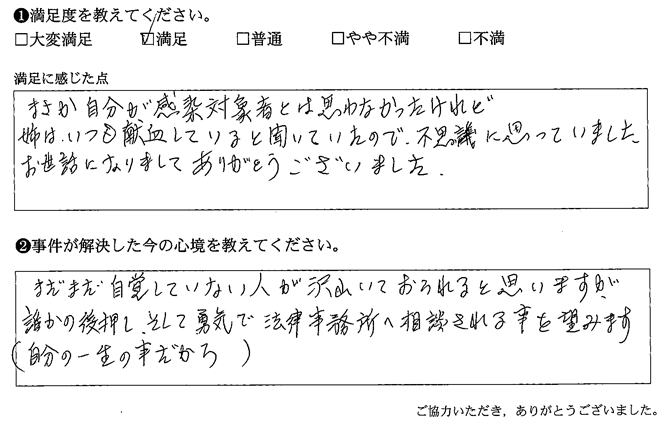 ❶満足度を教えてください。
□大変満足 ☑満足 □普通 □やや不満 □不満
満足に感じた点
まさか自分が感染対象者とは思わなかったけれど
姉は、いつも献血していると聞いていたので、不思議に思っていました。
お世話になりましてありがとうございました。
❷事件が解決した今の心境を教えてください。
まだまだ自覚していない人が沢山いておられると思いますが、
誰かの後押し、そして勇気で法律事務所へ相談される事を望みます
（自分の一生の事だから）
ご協力いただき，ありがとうございました。